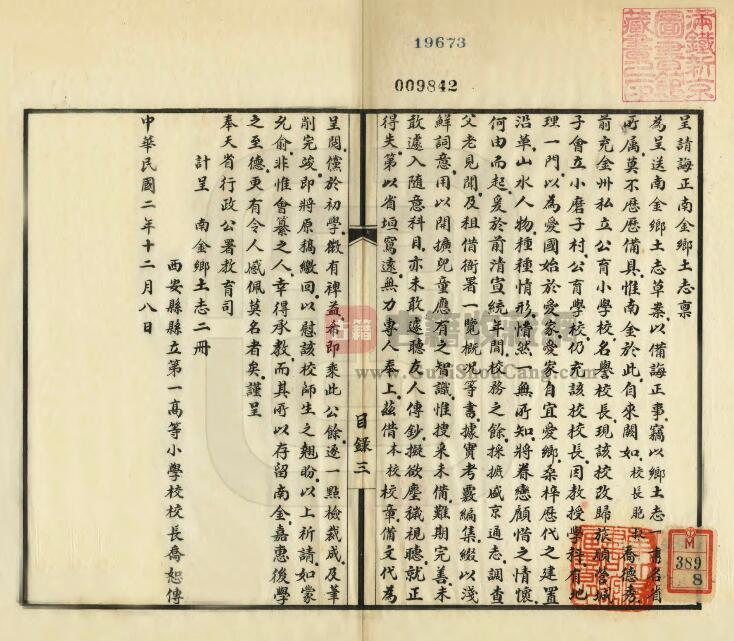 19673
009842
滿鐵新京圖書館藏書之印
呈請誨正南金鄉土志禀
為呈送南金鄉土志草案以備誨正事竊以鄉土志一書各省
所属莫不歷歷備具惟南金於此自來闕如校長喬德秀
前充金州私立公育小學校名譽校長現該校改歸旅順營城
子會立小磨子村公育學校仍充該校校長因教授學科有地
理一門以為愛國始於愛家愛家自宜愛鄉桑梓歷代之建置
沿革山水人物種種情形懵然一無所知將眷戀顧惜之情懷
何由而起爰於前清宣統年間校務之餘採摭盛京通志調查
父老見聞及租借衙署一覽概况等書據實考覈編集綴以淺
鮮詞意用以開擴兒童應有之智識惟搜采未備難期完善未
敢遽入隨意科目亦未敢遽聽友人傳鈔擬欲塵穢視聽就正
得失第以省垣寫遠無力專人奉上茲借本校校章借文代為
呈閱儻於初學微有裨益希即乘此公餘逐一點檢裁成及筆
削完竣即將原稿繳回以慰該校師生之翹盼以上祈請如蒙
允俞非惟會纂之人幸得承教而其所以存留南金嘉惠後學
之至德更有令人感佩莫名者矣謹呈
奉天省行政公署教育司
計呈 南金鄉土志二冊
西安縣縣立第一高等小學校校長喬恕傳
中華民國二年十二月八日
目錄三
古籍收藏
www.GuJiShouCang.com
M
389
8